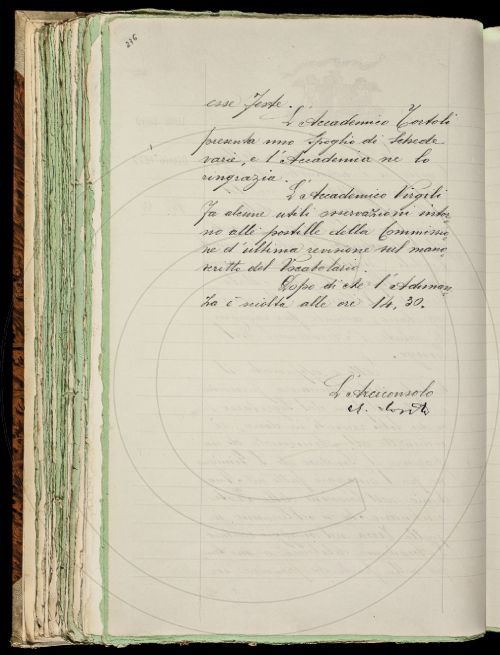 236
esse Feste.
L'Accademico Tortoli
presenta uno Spoglio di Schede
varie, e l'Accademia ne lo
ringrazia.
L'Accademico Virgili
fa alcune utili osservazioni intor-
no alle postille della Commissio-
ne d'ultima revisione sul mano-
scritto del Vocabolario.
Dopo di che l'Adunan-
za è sciolta alle ore 14,30.
L'Arciconsolo
A. Conti